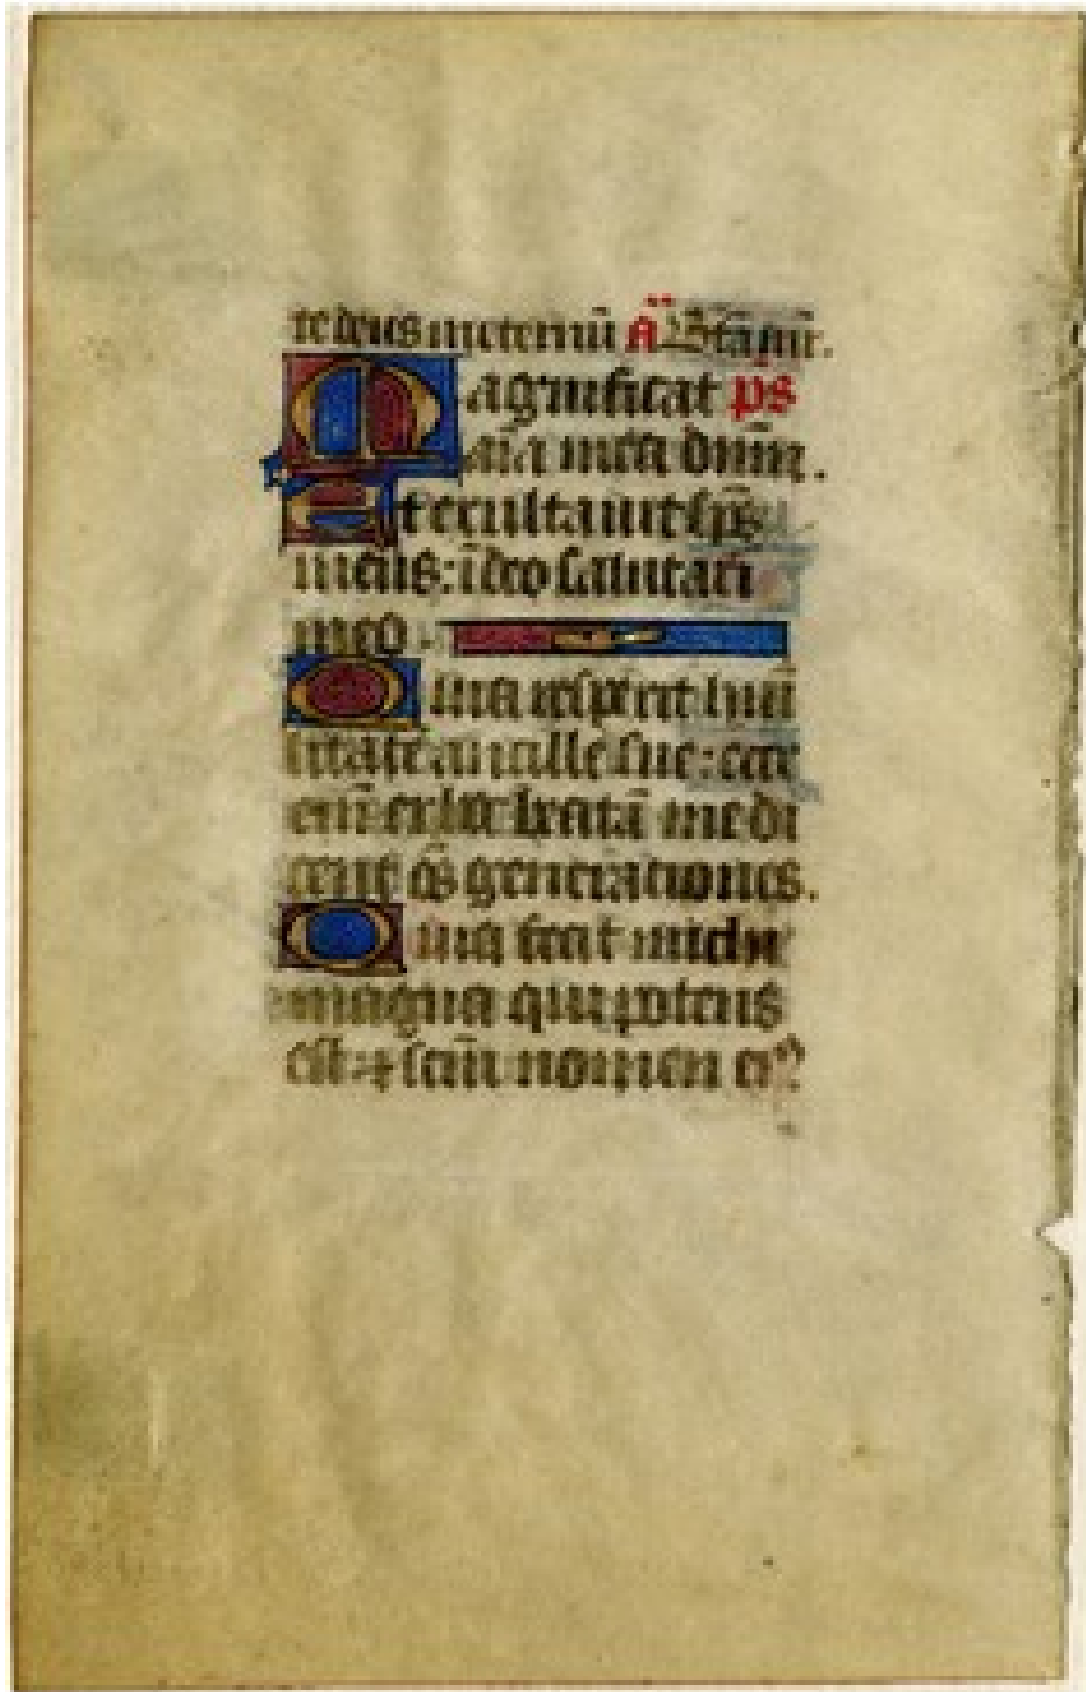 te deus in eternū Ā Btām̄.
Magnificat ps
aīa mea dnm̄.
Et exultauit sp̄s
meus: ī deo salutari
meo
Quia respexit humi
litatē ancille sue: ecce
enī ex hoc beatā me di
cent oēs generationes.
Quia fecit michi
magna qui potens
est: ⁊ scm̄ nomen eiꝰ